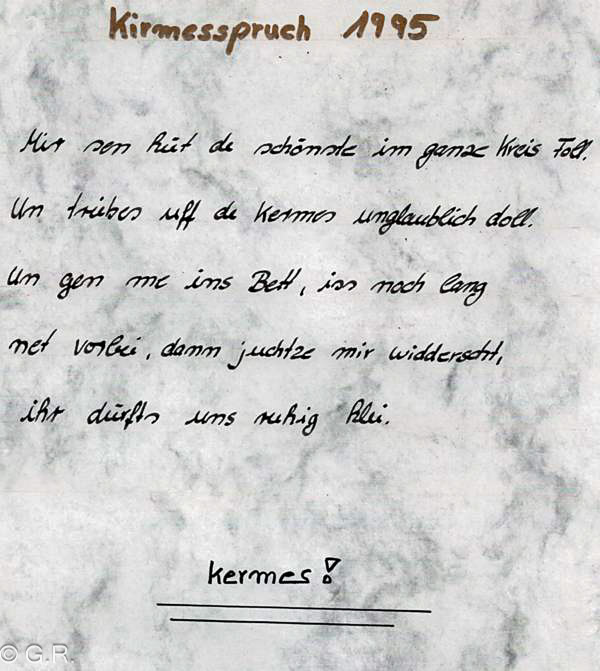 Kirmesspruch 1995
Mir sen hüt de schönste im ganze Kreis Foll.
Un triebes uff de Kermes unglaublich doll.
Un gen me ins Bett, iss noch lang
net vorbei, dann juchtze mir widderscht,
ihr dürfts uns ruhig klei.
Kermes!
© G.R.